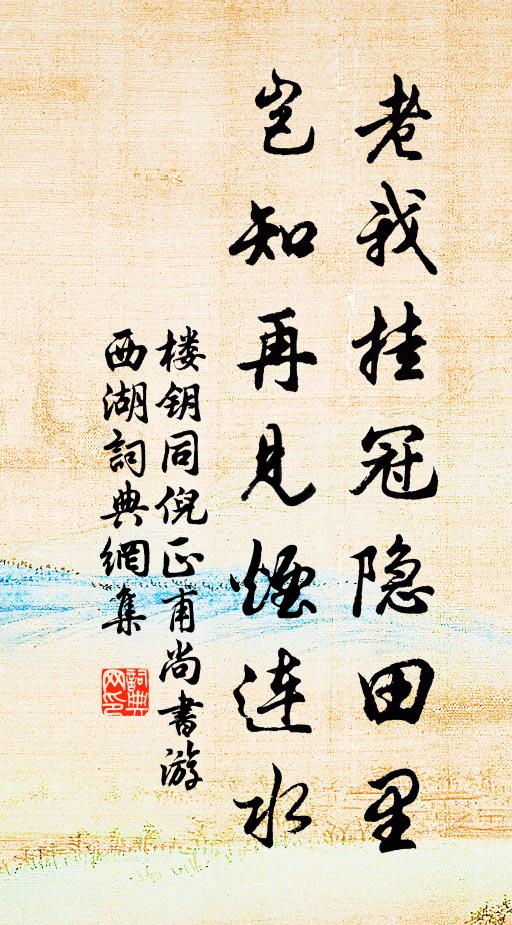 老我挂冠隐田里
岂知再见烟连水
楼钥同倪正甫尚书游
西湖詞典網集
詞典网印